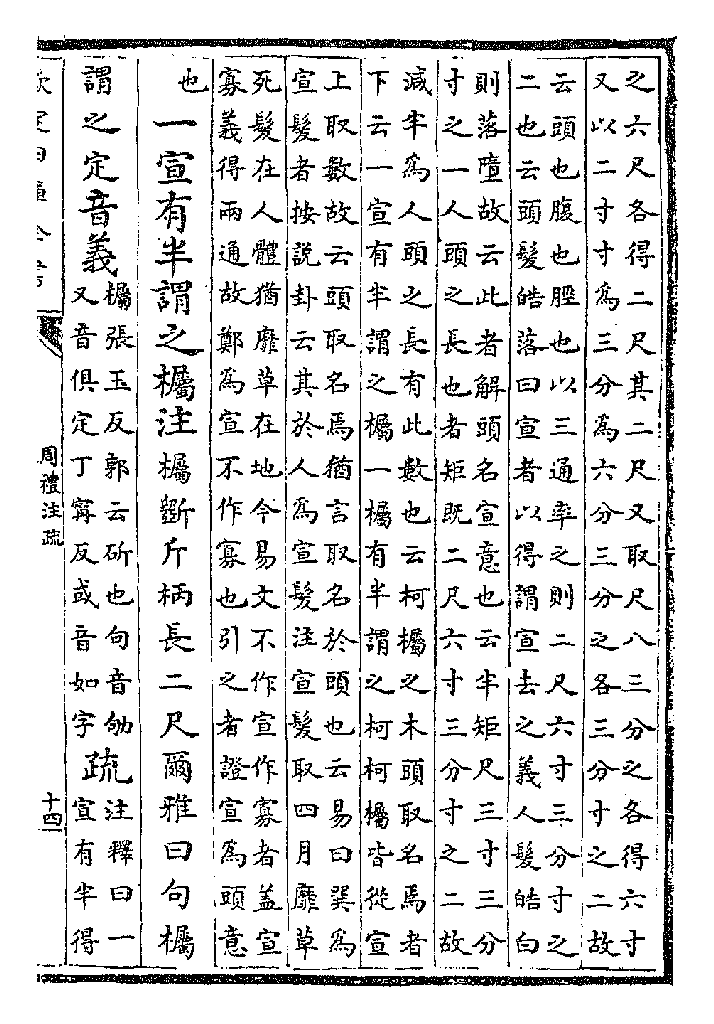 之六尺各得二尺其二尺又取尺八三分之各得六寸
又以二寸寸為三分為六分三分之各三分寸之二故
云頭也腹也脛也以三通率之則二尺六寸三分寸之
二也云頭髮皓落曰宣者以得謂宣去之義人髮皓白
則落墮故云此者解頭名宣意也云半矩尺三寸三分
寸之一人頭之長也者矩既二尺六寸三分寸之二故
減半為人頭之長有此數也云柯欘之木頭取名焉者
下云一宣有半謂之欘一欘有半謂之柯柯欘皆從宣
上取數故云頭取名焉猶言取名於頭也云易曰巽為
宣髮者按說卦云其於人為宣髮注宣髮取四月靡草
死髮在人體猶靡草在地今易文不作宣作寡者蓋宣
寡義得兩通故鄭為宣不作寡也引之者證宣為頭意
也
一宣有半謂之欘注欘斵斤柄長二尺爾雅曰句欘
謂之定音義
欘張玉反郭云斫也句音劬
又音俱定丁寧反或音如字
疏
注釋曰一
宣有半得
欽定四庫全書
周禮注疏
十四